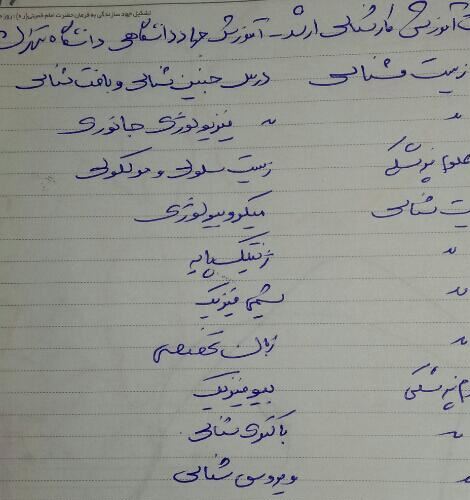 تشکیل جهاد سازندگی به فرمان حضرت امام خمینی(ره) - روز
آموزش کارشناسی ارشد - آموزش جهاد دانشگاهی دانشگاه تهران
زیست شناسی درس جنین شناسی و بافت شناسی
" " فیزیولوژی جانوری
علوم پزشکی زیست سلولی و مولکولی
شناسی میکروبیولوژی
" ژنتیک پایه
" شیمی فیزیک
" زبان تخصصی
پزشکی بیوفیزیک
" باکتری شناسی
ویروس شناسی